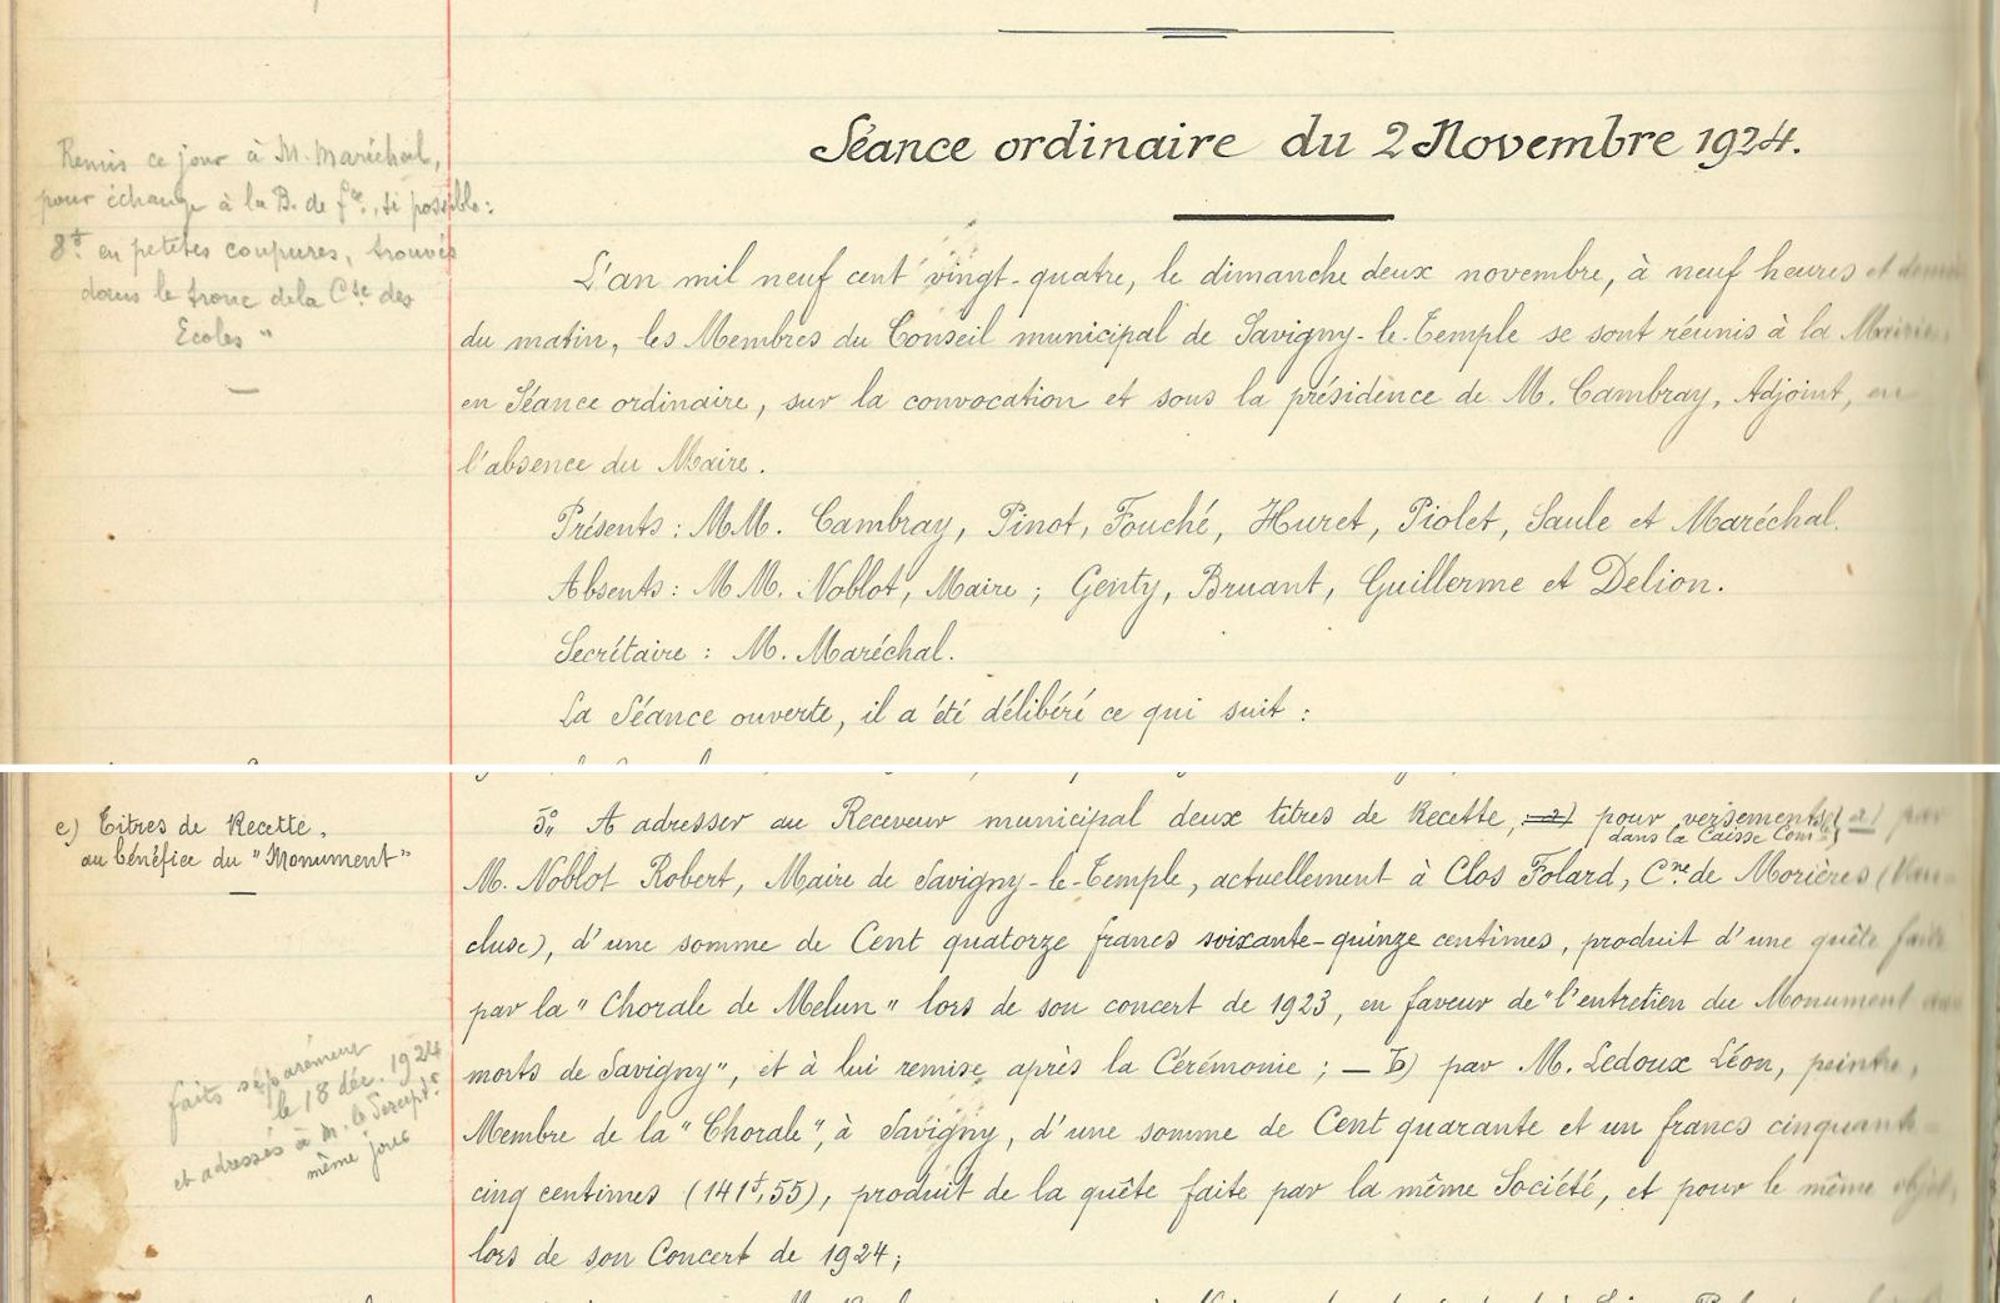 Séance ordinaire du 2 Novembre 1924.
Remis ce jour à M. Maréchal,
pour échange à la B. de fce, si possible :
8f en petites coupures, trouvés
dans le tronc de la Cse des
Ecoles "
L'an mil neuf cent vingt-quatre, le dimanche deux novembre, à neuf heures et demie
du matin, les Membres du Conseil municipal de Savigny-le-Temple se sont réunis à la Mairie,
en Séance ordinaire, sur la convocation et sous la présidence de M. Cambray, Adjoint, en
l'absence du Maire.
Présents : MM. Cambray, Pinot, Fouché, Huret, Piolet, Saule et Maréchal.
Absents : MM. Noblot, Maire ; Genty, Bruant, Guillerme et Delion.
Secrétaire : M. Maréchal.
La Séance ouverte, il a été délibéré ce qui suit :
e) Titres de Recette,
au bénéfice du "Monument"
5o,, A adresser au Receveur municipal deux titres de Recette, a) pour versements a) par
dans la Caisse Comle
M. Noblot Robert, Maire de Savigny-le-Temple, actuellement à Clos Folard, Cne de Morières (Vau-
cluse), d'une somme de Cent quatorze francs soixante-quinze centimes, produit d'une quête faite
par la "Chorale de Melun" lors de son concert de 1923, en faveur de "l'entretien du Monument aux
morts de Savigny", et à lui remise après la Cérémonie ; — b) par M. Ledoux Léon, peintre,
Membre de la "Chorale", à Savigny, d'une somme de Cent quarante et un francs cinquante-
cinq centimes (141f,55), produit de la quête faite par la même Société, et pour le même objet,
lors de son Concert de 1924 ;
faits séparément
le 18 déc. 1924
et adressés à M. le Percepr
même jour